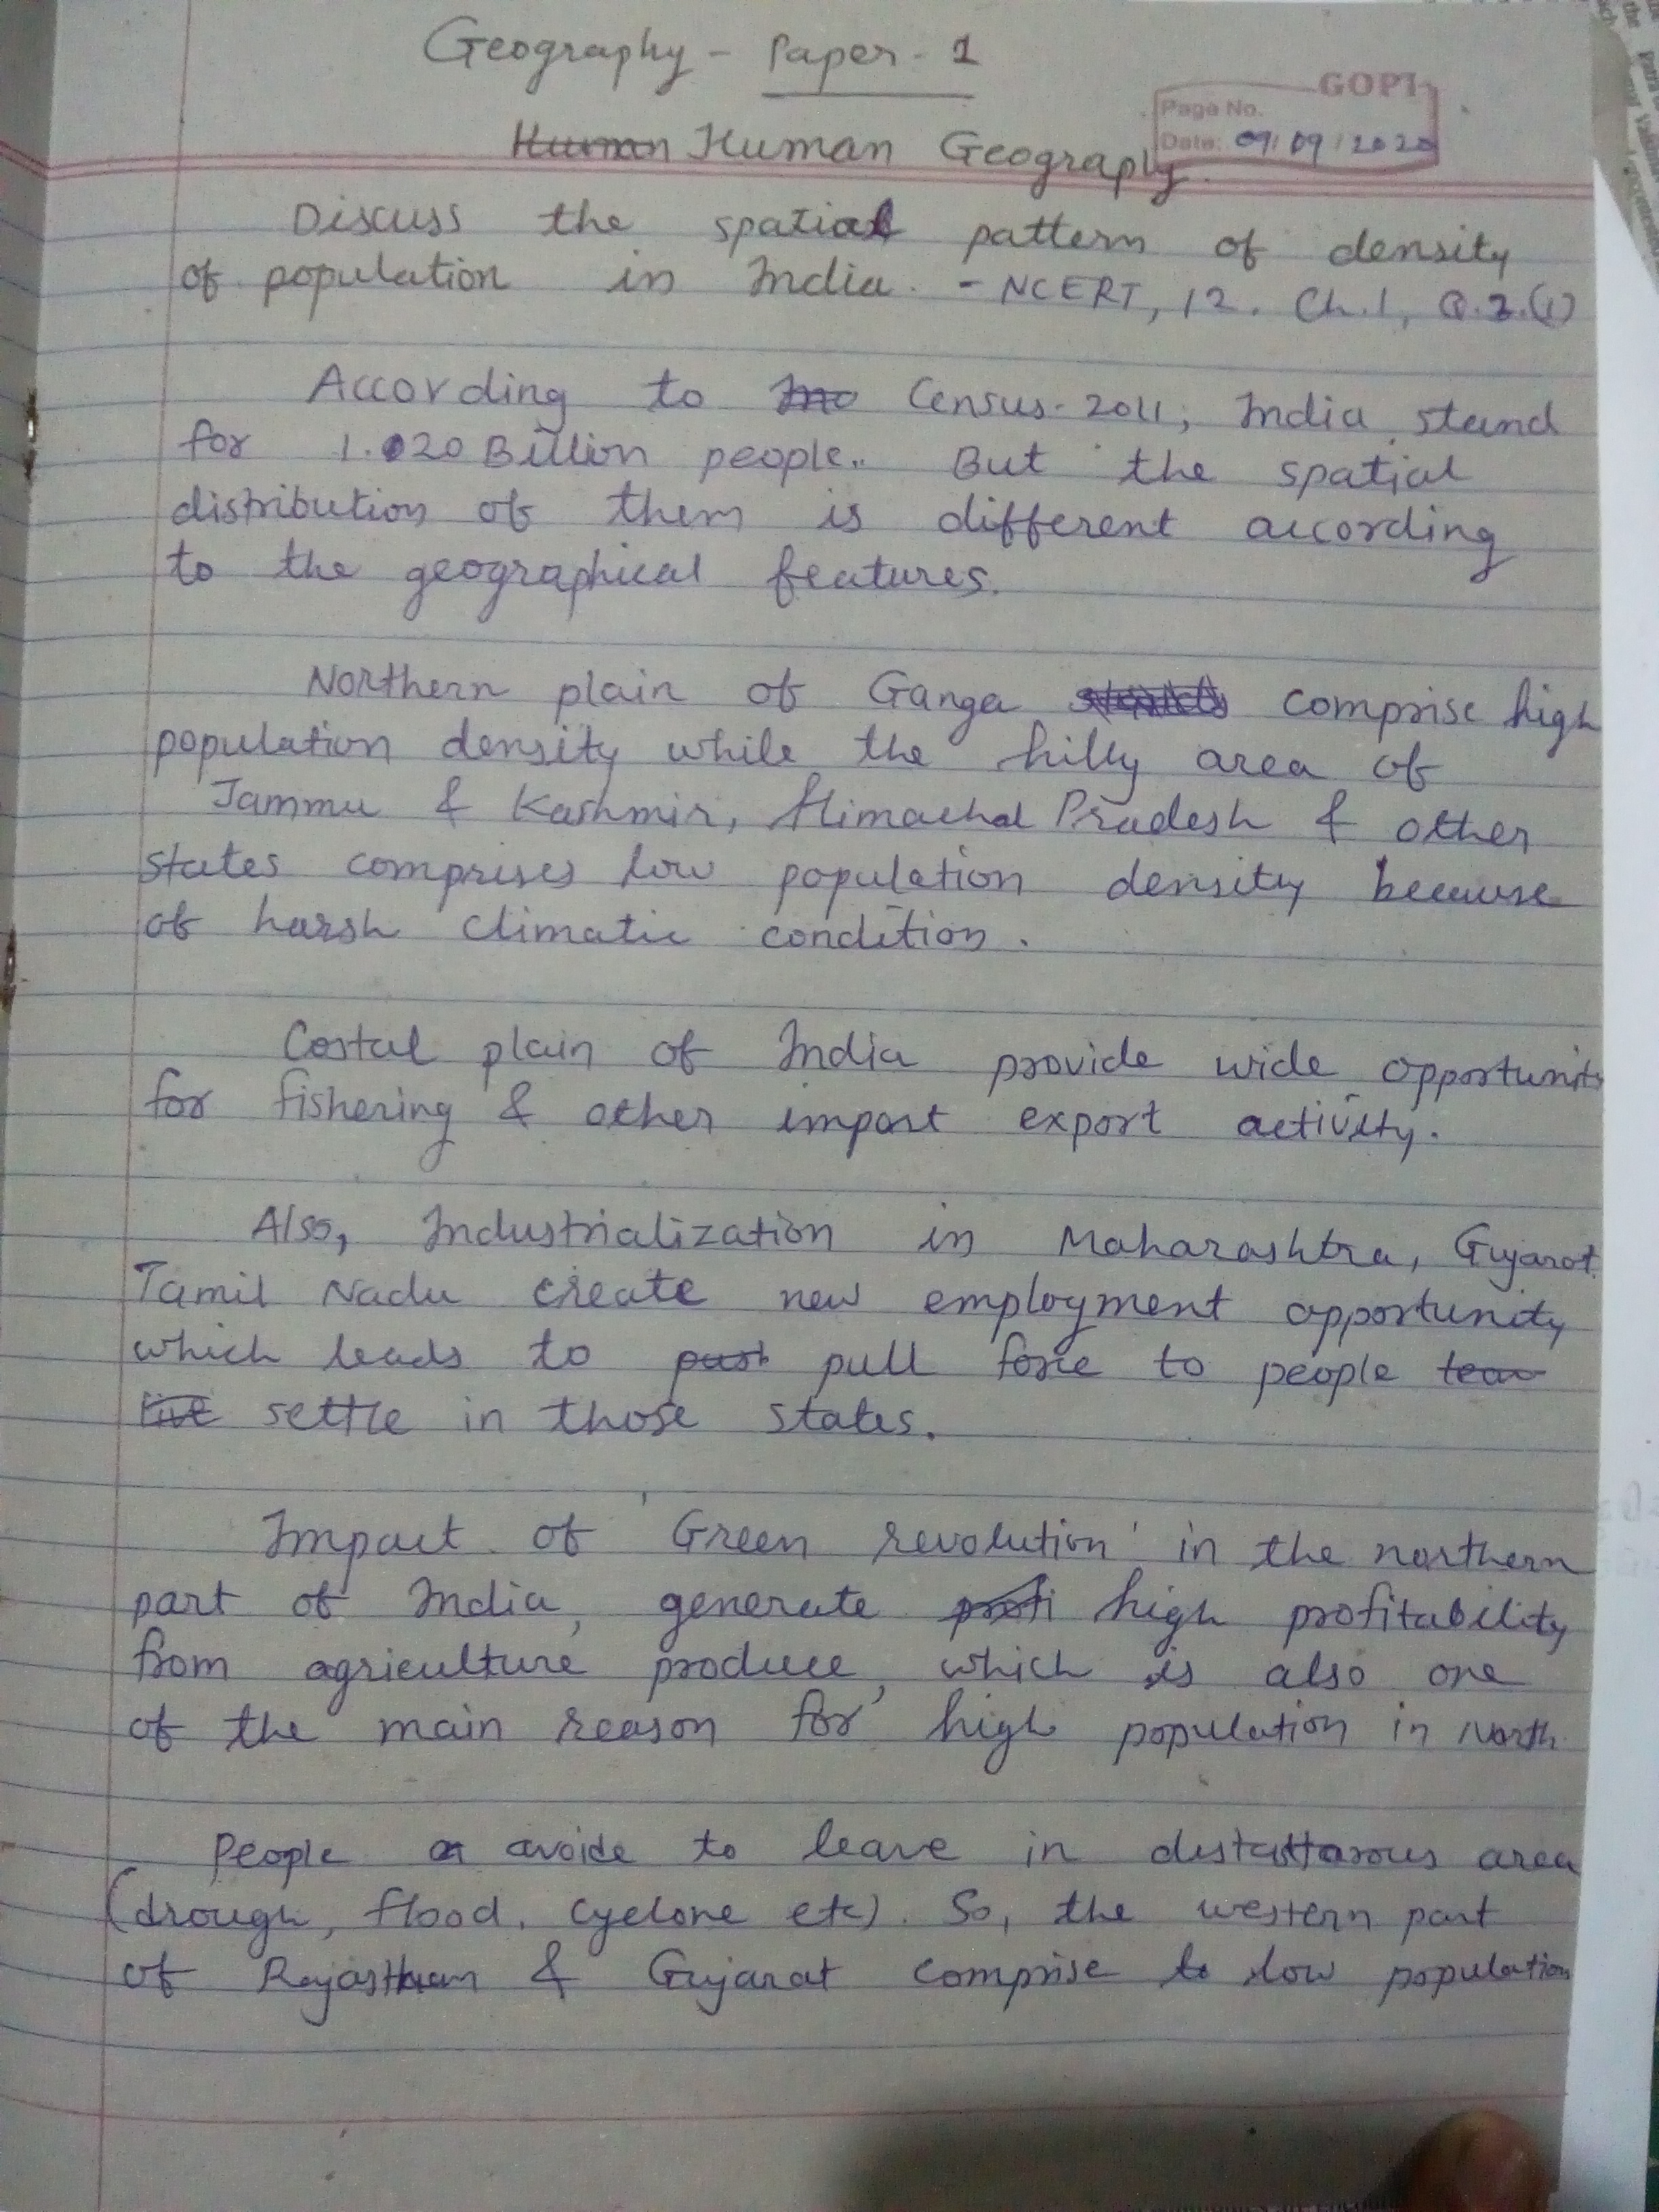 Geography - Paper - 1
GOPI
Page No.
Date: 09/09/2020
Human Human Geography.
Discuss the spatial pattern of density
of population in India. - NCERT, 12. Ch.1, Q.3.(i)
According to Census-2011, India stand
for 1.020 Billion people. But the spatial
distribution of them is different according
to the geographical features.
Northern plain of Ganga comprise high
population density while the hilly area of
Jammu & Kashmir, Himachal Pradesh & other
states comprises low population density because
of harsh climatic condition.
Costal plain of India provide wide opportunity
for fishering & other import export activity.
Also, Industrialization in Maharashtra, Gujarat
Tamil Nadu create new employment opportunity
which leads to push pull force to people
live settle in those states.
Impact of 'Green revolution' in the northern
part of India, generate profi high profitability
from agriculture produce, which is also one
of the main reason for high population in North.
People avoide to leave in distattarous area
(drough, flood, cyclone etc). So, the western part
of Rajasthan & Gujarat comprise to low population